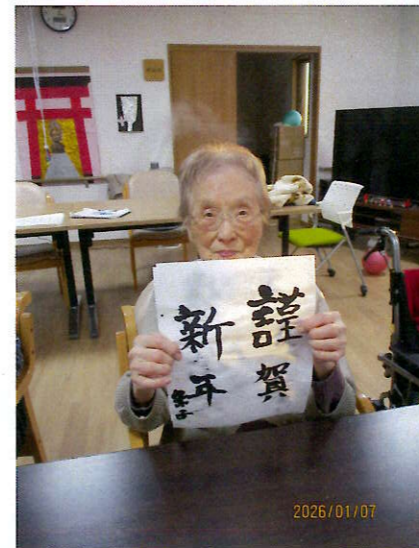 謹賀
新年
2026/01/07